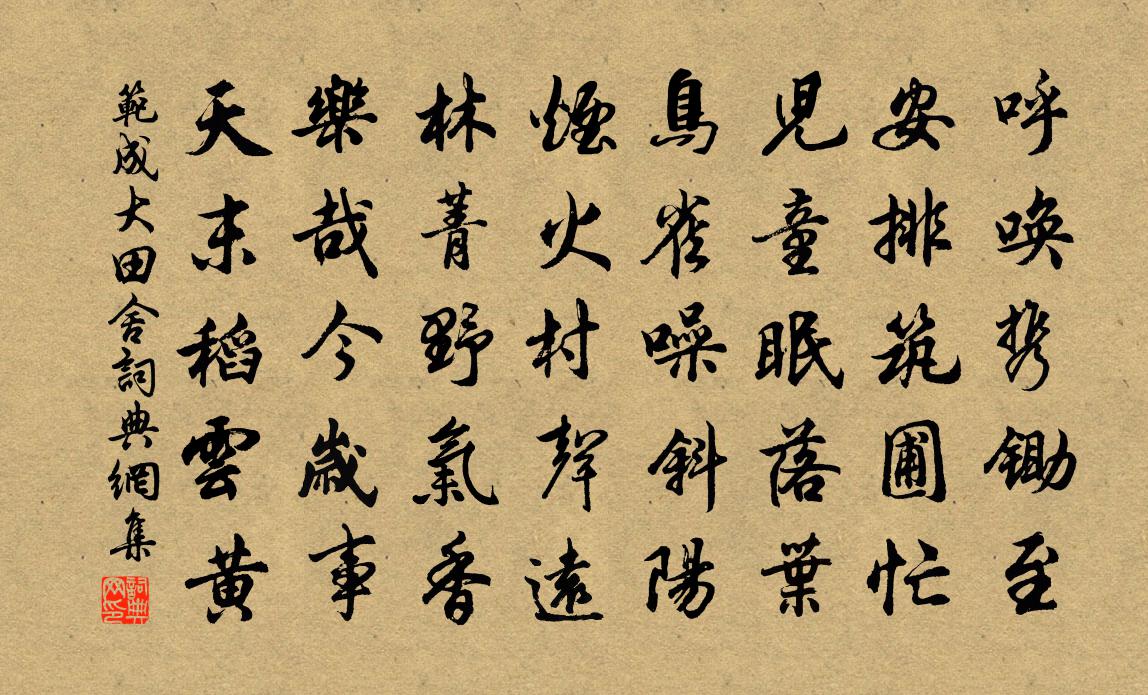 呼喚携鋤至
安排筑圃忙
兒童眠落葉
鳥雀噪斜陽
煙火村聲遠
林菁野氣香
樂哉今歲事
天末稻雲黃
範成大田舍詞典網集
詞典网印